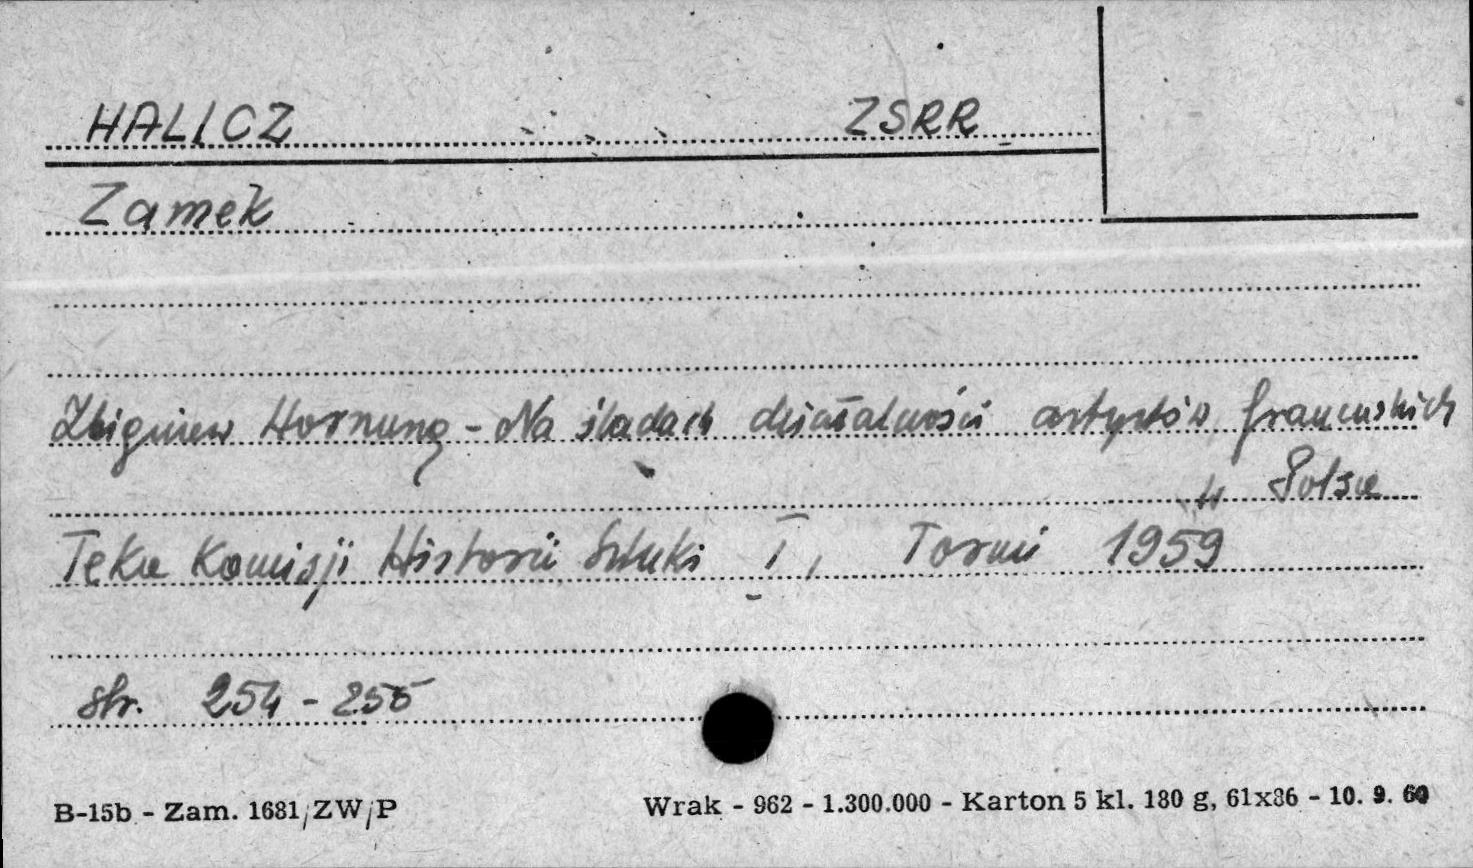 HALICZ ZSRR
Zamek
Zbigniew Hornung - Na śladach działalności artystów francuskich
w Polsce
Teka Komisji Historii Sztuki I, Toruń 1959
str. 254 - 255
B-15b - Zam. 1681/ZW/P Wrak - 962 - 1.300.000 - Karton 5 kl. 180 g, 61x86 - 10. 9. 60